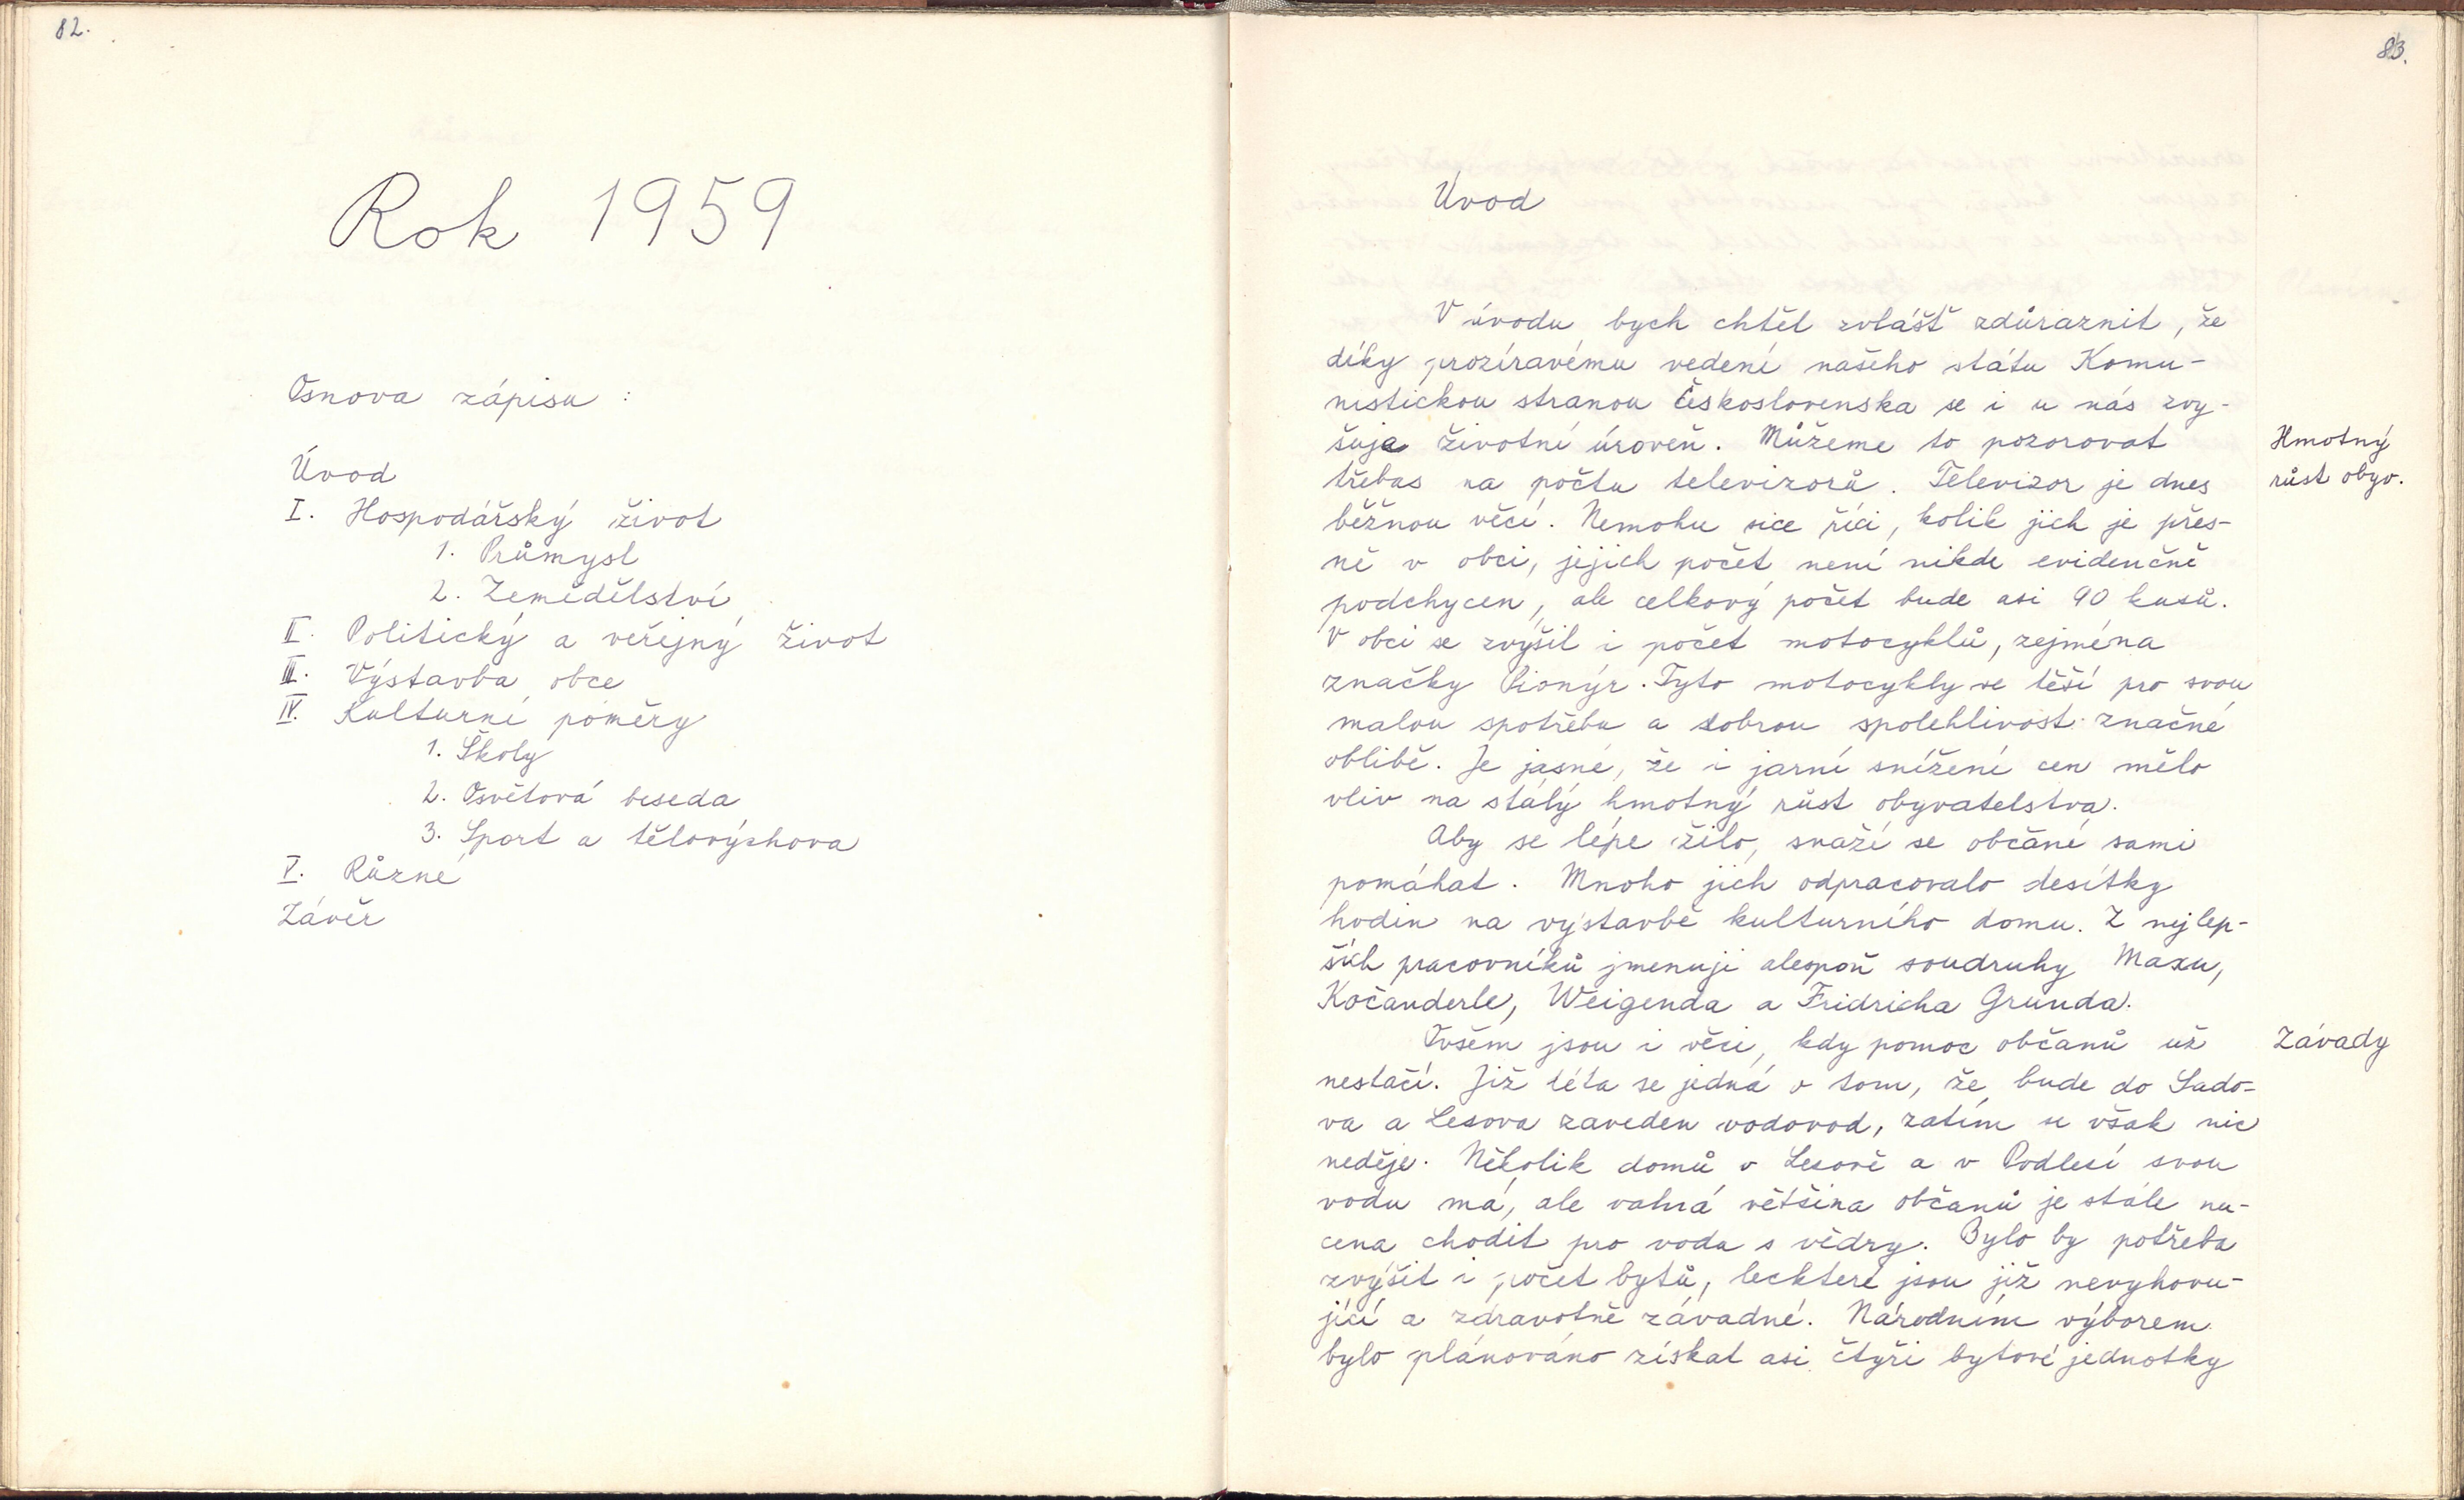 82.
Rok 1959
Osnova zápisu :
Úvod
I. Hospodářský život
1. Průmysl
2. Zemědělství
II. Politický a veřejný život
III. Výstavba obce
IV. Kulturní poměry
1. Školy
2. Osvětová beseda
3. Sport a tělovýchova
V. Různé
Závěr
83.
Úvod
V úvodu bych chtěl zvlášť zdůraznit, že
díky prozíravému vedení našeho státu Komu-
nistickou stranou Československa se i u nás zvy-
šuje životní úroveň. Můžeme to pozorovat
třebas na počtu televizorů. Televizor je dnes
běžnou věcí. Nemohu sice říci, kolik jich je přes-
ně v obci, jejich počet není nikde evidenčně
podchycen, ale celkový počet bude asi 90 kusů.
V obci se zvýšil i počet motocyklů, zejména
značky Pionýr. Tyto motocykly se těší pro svou
malou spotřebu a dobrou spolehlivost značné
oblibě. Je jasné, že i jarní snížení cen mělo
vliv na stálý hmotný růst obyvatelstva.
Aby se lépe žilo, snaží se občané sami
pomáhat. Mnoho jich odpracovalo desítky
hodin na výstavbě kulturního domu. Z nejlep-
ších pracovníků jmenuji alespoň soudruhy Maxu,
Kočanderle, Weigenda a Fridricha Grunda.
Ovšem jsou i věci, kdy pomoc občanů už
nestačí. Již léta se jedná o tom, že bude do Sado-
va a Lesova zaveden vodovod, zatím se však nic
neděje. Několik domů v Lesově a v Podlesí svou
vodu má, ale valná většina občanů je stále nu-
cena chodit pro vodu s vědry. Bylo by potřeba
zvýšit i počet bytů, leckteré jsou již nevyhovu-
jící a zdravotně závadné. Národním výborem
bylo plánováno získat asi čtyři bytové jednotky
Hmotný
růst obyv.
Závady